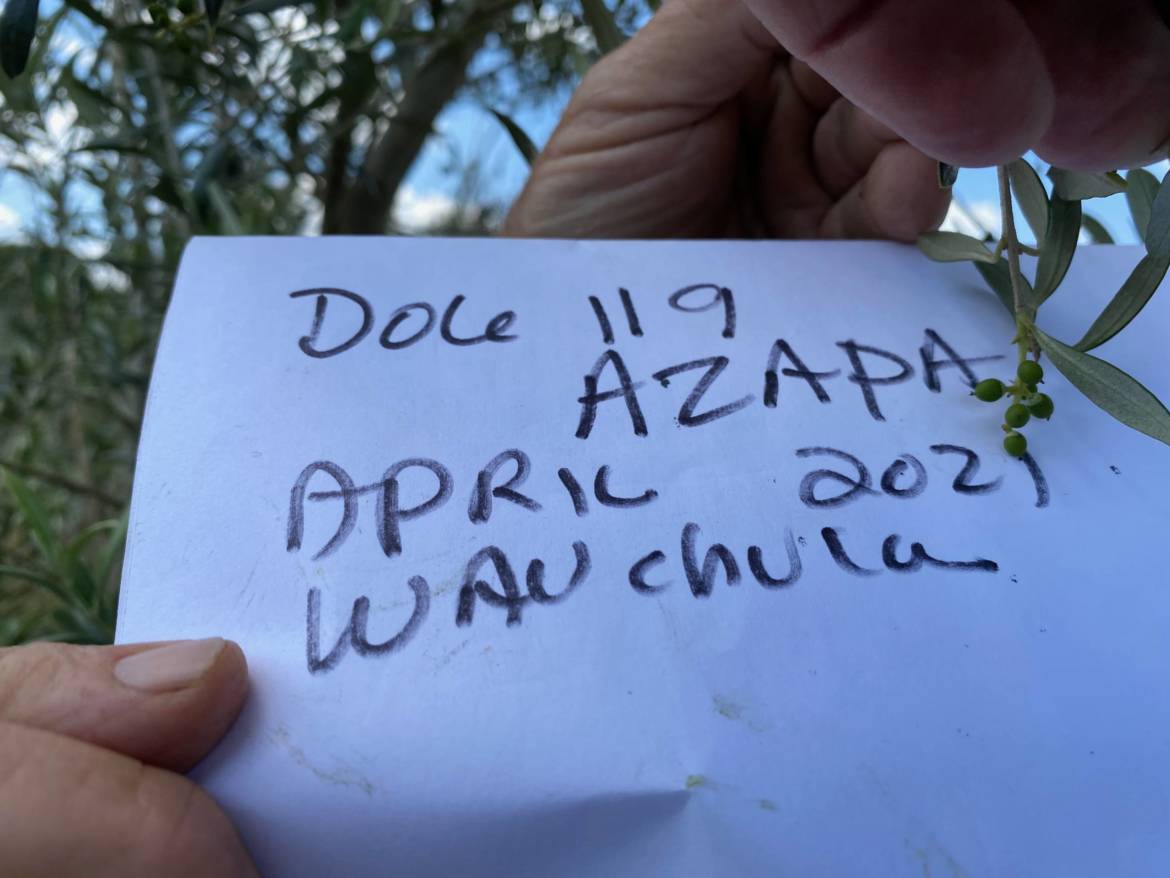 DOLe 119
AZAPA
APRIL 2021
WAUchula